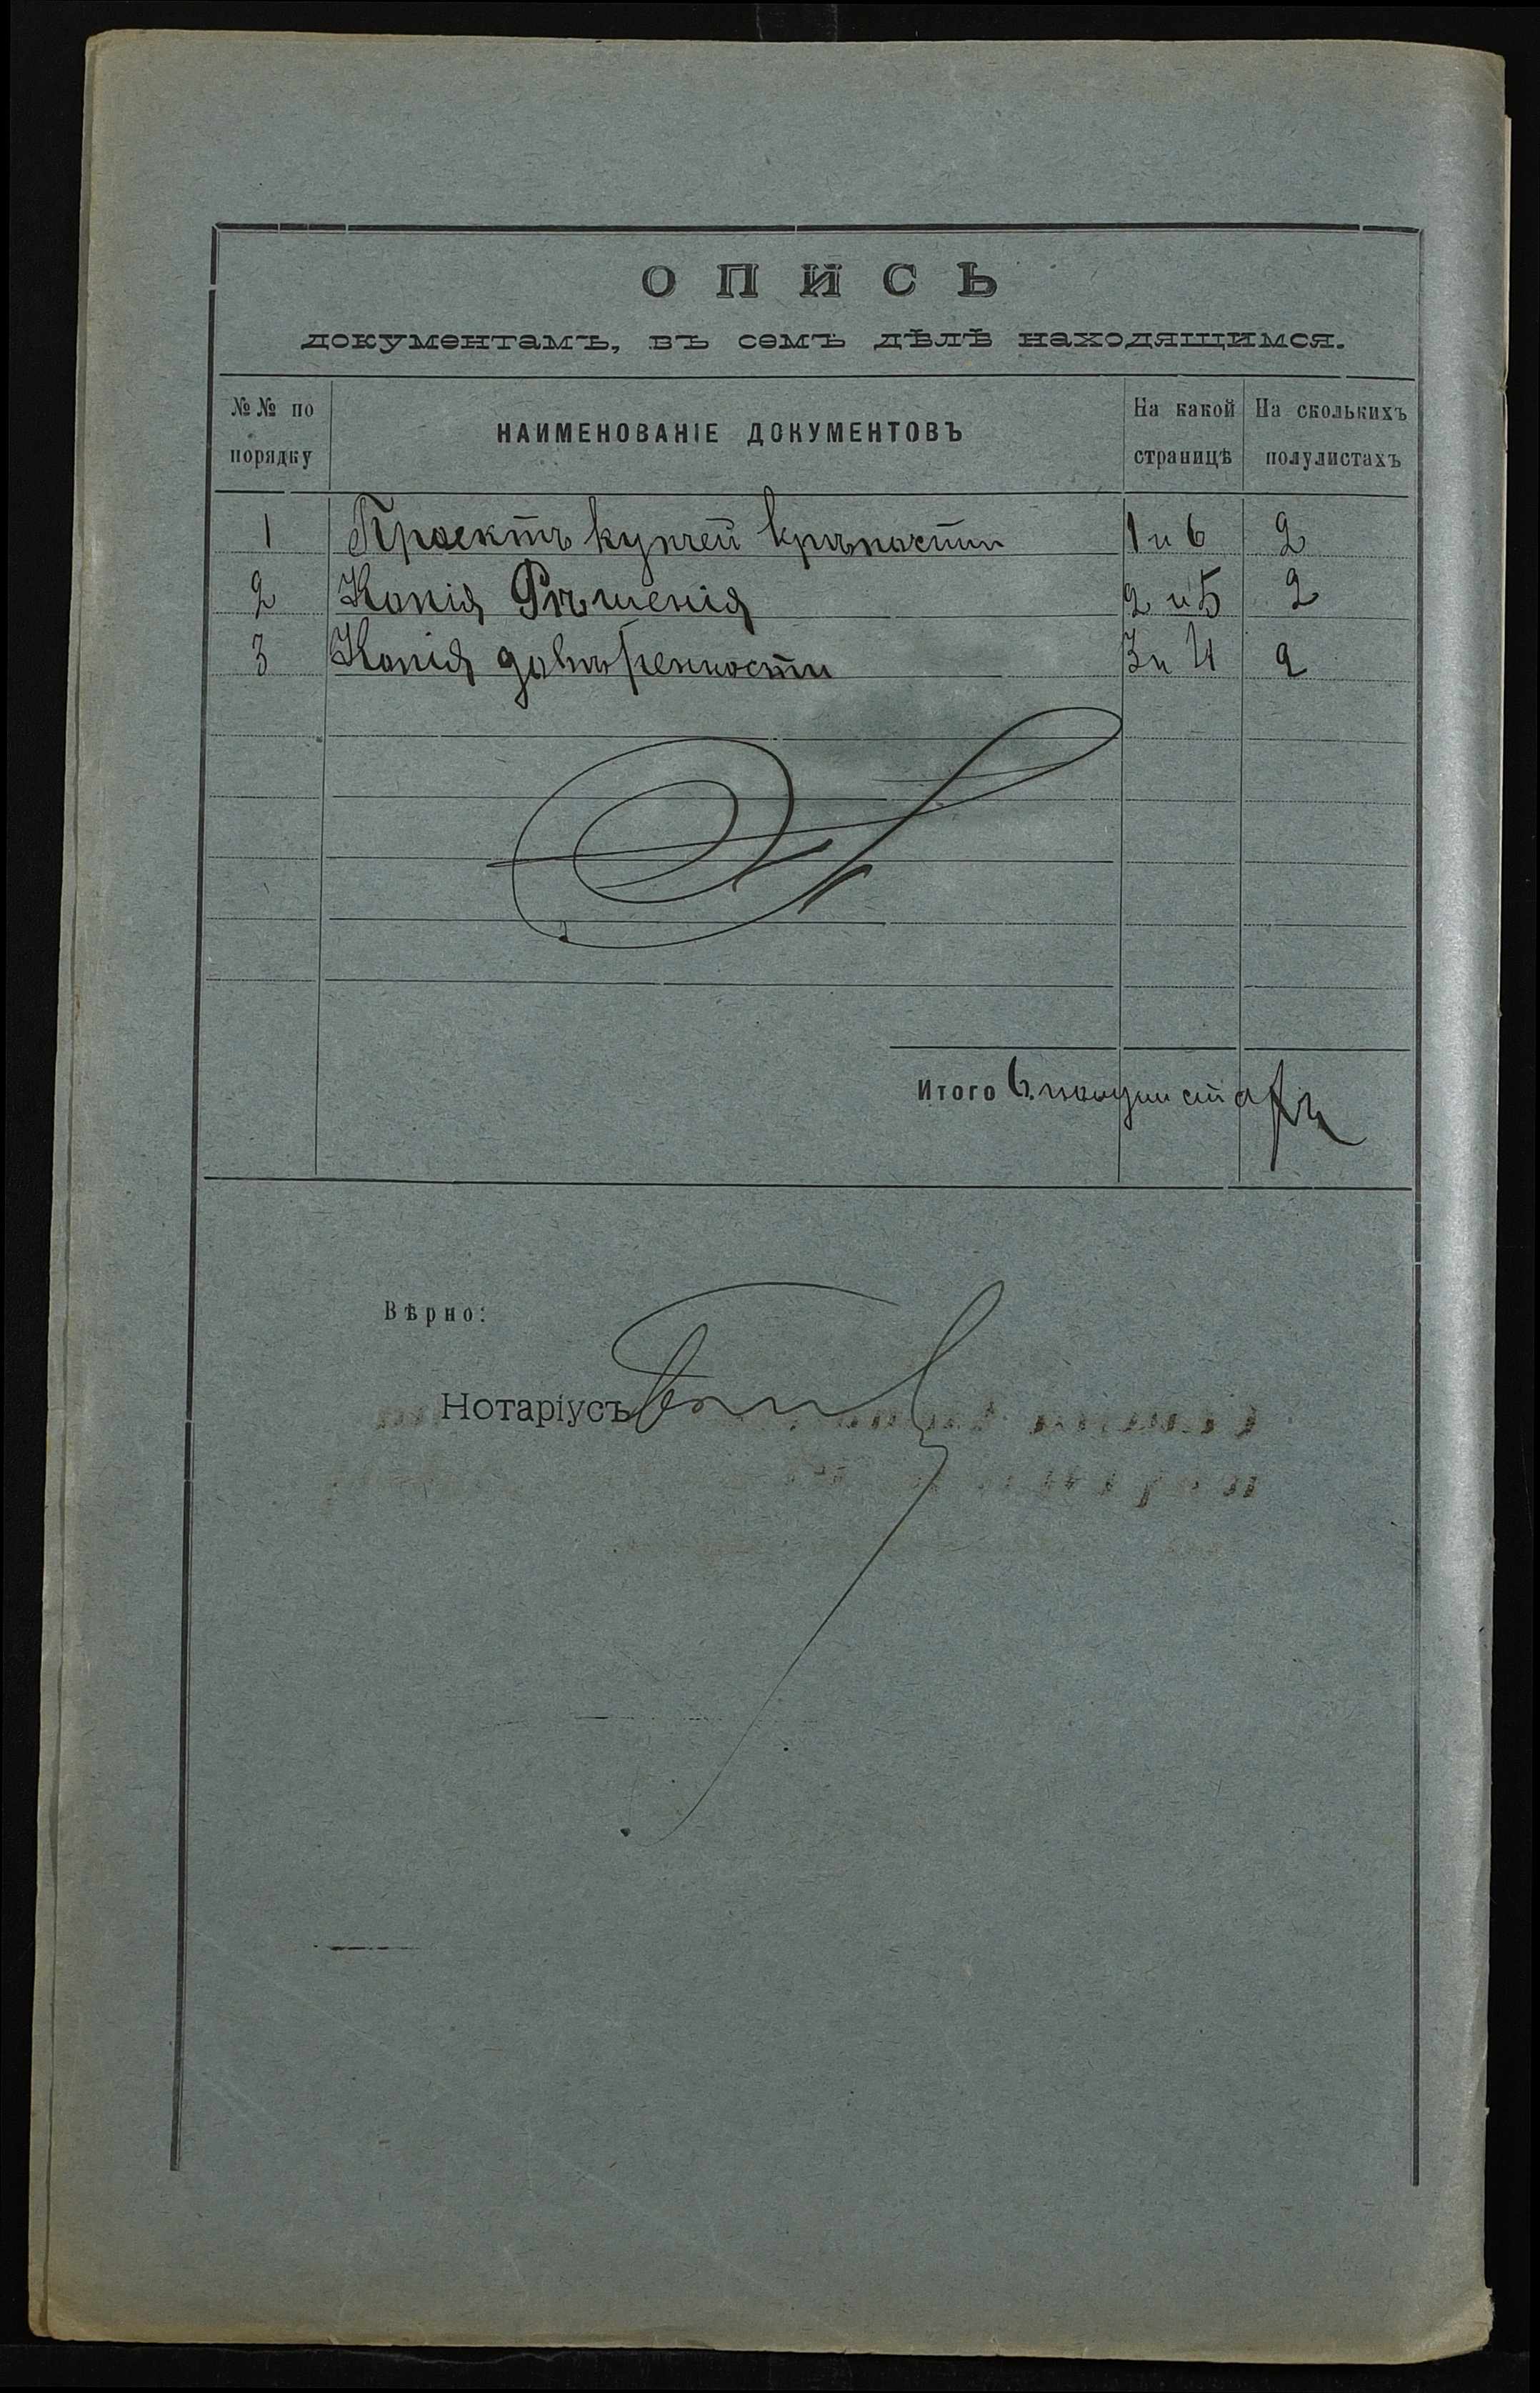 ОПИСЬ
документамъ, въ семъ дѣлѣ находящимся.
№№ по порядку НАИМЕНОВАНІЕ ДОКУМЕНТОВЪ На какой страницѣ На сколькихъ полулистахъ
1 Проектъ купчей крѣпости 1 и 6 2
2 Копія Рѣшенія 2 и 5 2
3 Копія довѣренности 3 и 4 2
Итого 6 полулистахъ
Вѣрно:
Нотаріусъ